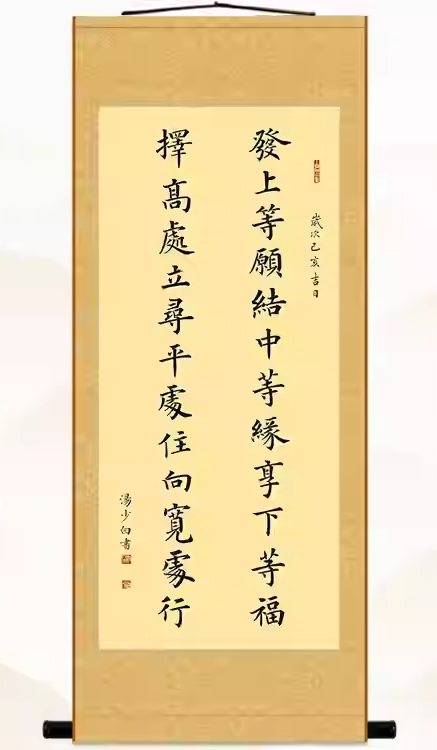 歲次己亥吉日
發上等願結中等緣享下等福
擇髙處立尋平處住向寬處行
湯少白書